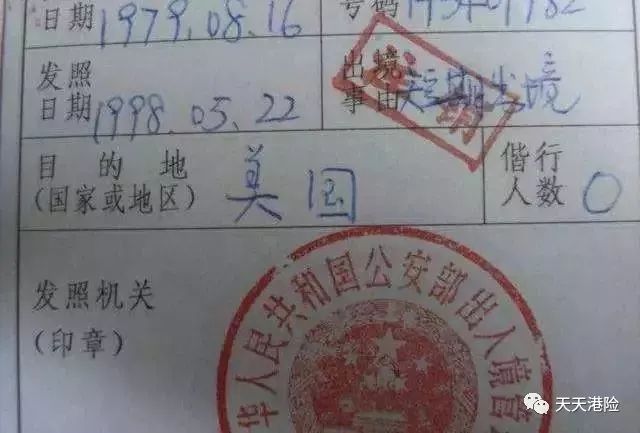 日期 1979.08.16
号码
发照
日期 1998.05.22
出境
事由 短期出境
目的地
(国家或地区) 美国
偕行
人数 0
发照机关
(印章)
华人民共和国公安部出入境管
天天港险